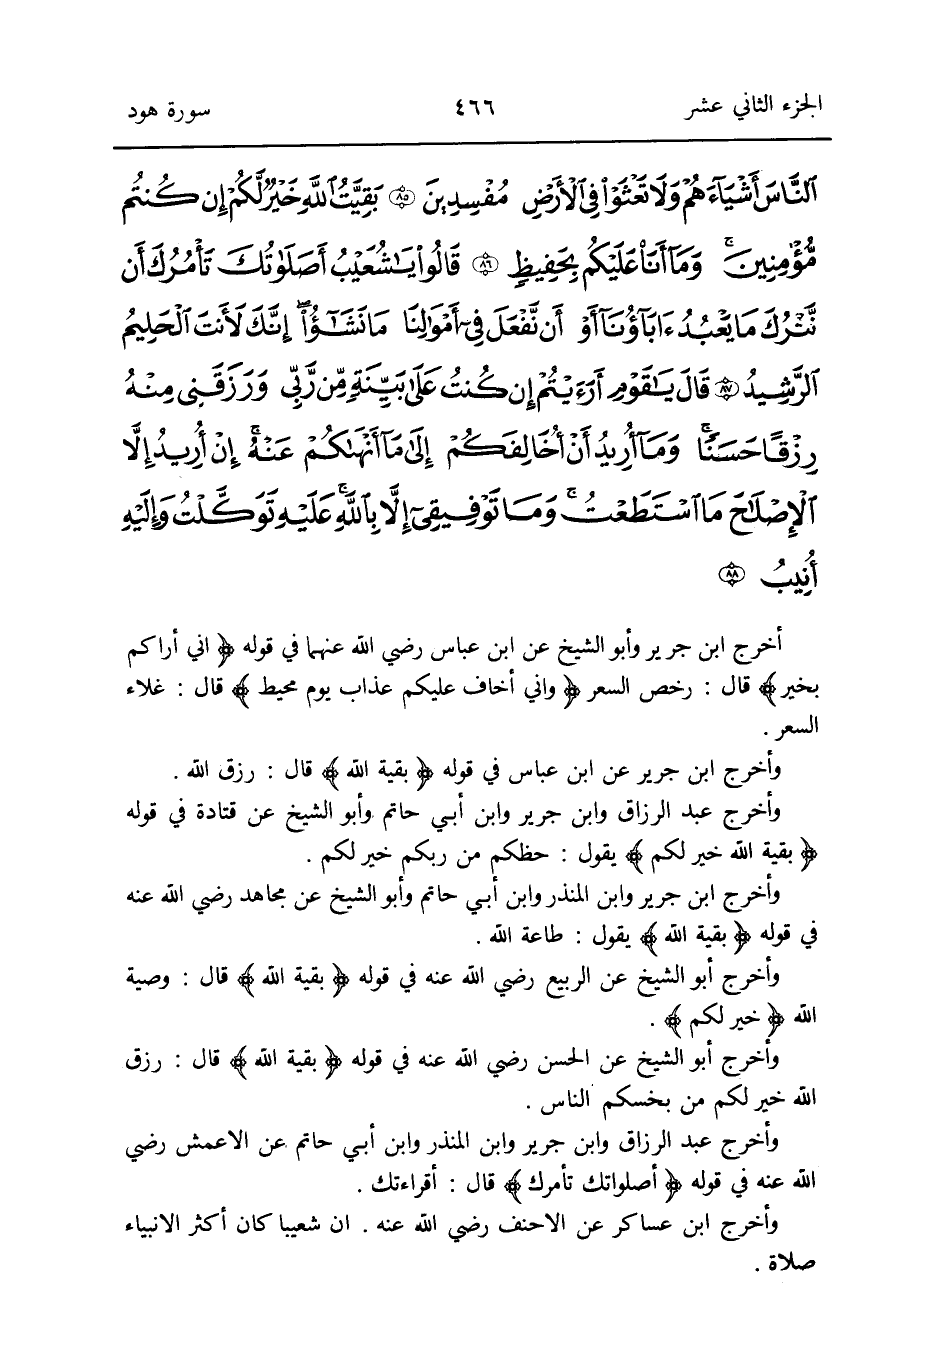 الجزء الثاني عشر ٤٦٦ سورة هود
النَّاسَ أَشْيَآءَهُمْ وَلَا تَعْثَوْا۟ فِى ٱلْأَرْضِ مُفْسِدِينَ ۝٨٥ بَقِيَّتُ ٱللَّهِ خَيْرٌ لَّكُمْ إِن كُنتُم
مُّؤْمِنِينَ ۚ وَمَآ أَنَا۠ عَلَيْكُم بِحَفِيظٍ ۝٨٦ قَالُوا۟ يَـٰشُعَيْبُ أَصَلَوٰتُكَ تَأْمُرُكَ أَن
نَّتْرُكَ مَا يَعْبُدُ ءَابَآؤُنَآ أَوْ أَن نَّفْعَلَ فِىٓ أَمْوَٰلِنَا مَا نَشَـٰٓؤُا۟ ۖ إِنَّكَ لَأَنتَ ٱلْحَلِيمُ
ٱلرَّشِيدُ ۝٨٧ قَالَ يَـٰقَوْمِ أَرَءَيْتُمْ إِن كُنتُ عَلَىٰ بَيِّنَةٍ مِّن رَّبِّى وَرَزَقَنِى مِنْهُ
رِزْقًا حَسَنًا ۚ وَمَآ أُرِيدُ أَنْ أُخَالِفَكُمْ إِلَىٰ مَآ أَنْهَىٰكُمْ عَنْهُ ۚ إِنْ أُرِيدُ إِلَّا
ٱلْإِصْلَـٰحَ مَا ٱسْتَطَعْتُ ۚ وَمَا تَوْفِيقِىٓ إِلَّا بِٱللَّهِ ۚ عَلَيْهِ تَوَكَّلْتُ وَإِلَيْهِ
أُنِيبُ ۝٨٨
أخرج ابن جرير وأبو الشيخ عن ابن عباس رضي الله عنهما في قوله ﴿ اني أراكم
بخير ﴾ قال : رخص السعر ﴿ واني أخاف عليكم عذاب يوم محيط ﴾ قال : غلاء
السعر .
وأخرج ابن جرير عن ابن عباس في قوله ﴿ بقية الله ﴾ قال : رزق الله .
وأخرج عبد الرزاق وابن جرير وابن أبي حاتم وأبو الشيخ عن قتادة في قوله
﴿ بقية الله خير لكم ﴾ يقول : حظكم من ربكم خير لكم .
وأخرج ابن جرير وابن المنذر وابن أبي حاتم وأبو الشيخ عن مجاهد رضي الله عنه
في قوله ﴿ بقية الله ﴾ يقول : طاعة الله .
وأخرج أبو الشيخ عن الربيع رضي الله عنه في قوله ﴿ بقية الله ﴾ قال : وصية
الله ﴿ خير لكم ﴾ .
وأخرج أبو الشيخ عن الحسن رضي الله عنه في قوله ﴿ بقية الله ﴾ قال : رزق
الله خير لكم من بخسكم الناس .
وأخرج عبد الرزاق وابن جرير وابن المنذر وابن أبي حاتم عن الاعمش رضي
الله عنه في قوله ﴿ أصلواتك تأمرك ﴾ قال : أقراءتك .
وأخرج ابن عساكر عن الاحنف رضي الله عنه . ان شعيبا كان أكثر الانبياء
صلاة .